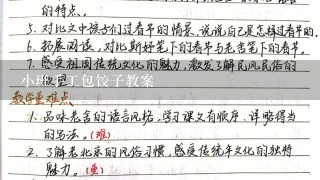 的特点。
5. 对比文中孩子们过春节的情景,说说自己是怎样过春节的.
6. 拓展阅读,对比斯妤笔下的春节与老舍笔下的春节。
7. 感受祖国传统文化的魅力,激发了解民风民俗的
小班手工包饺子教案
教学重难点
1. 品味老舍的语言风格,学习课文有顺序、详略得当
的写法。(难)
2. 了解老北京的风俗习惯,感受传统年文化的独特
魅力。(重)